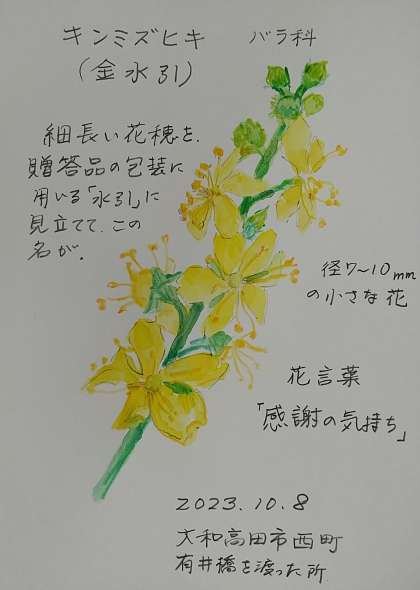 キンミズヒキ バラ科
(金水引)
細長い花穂を、
贈答品の包装に
用いる「水引」に
見立てて、この
名が。
径7~10mm
の小さな花
花言葉
「感謝の気持ち」
2023.10.8
大和高田市西町
有井橋を渡った所